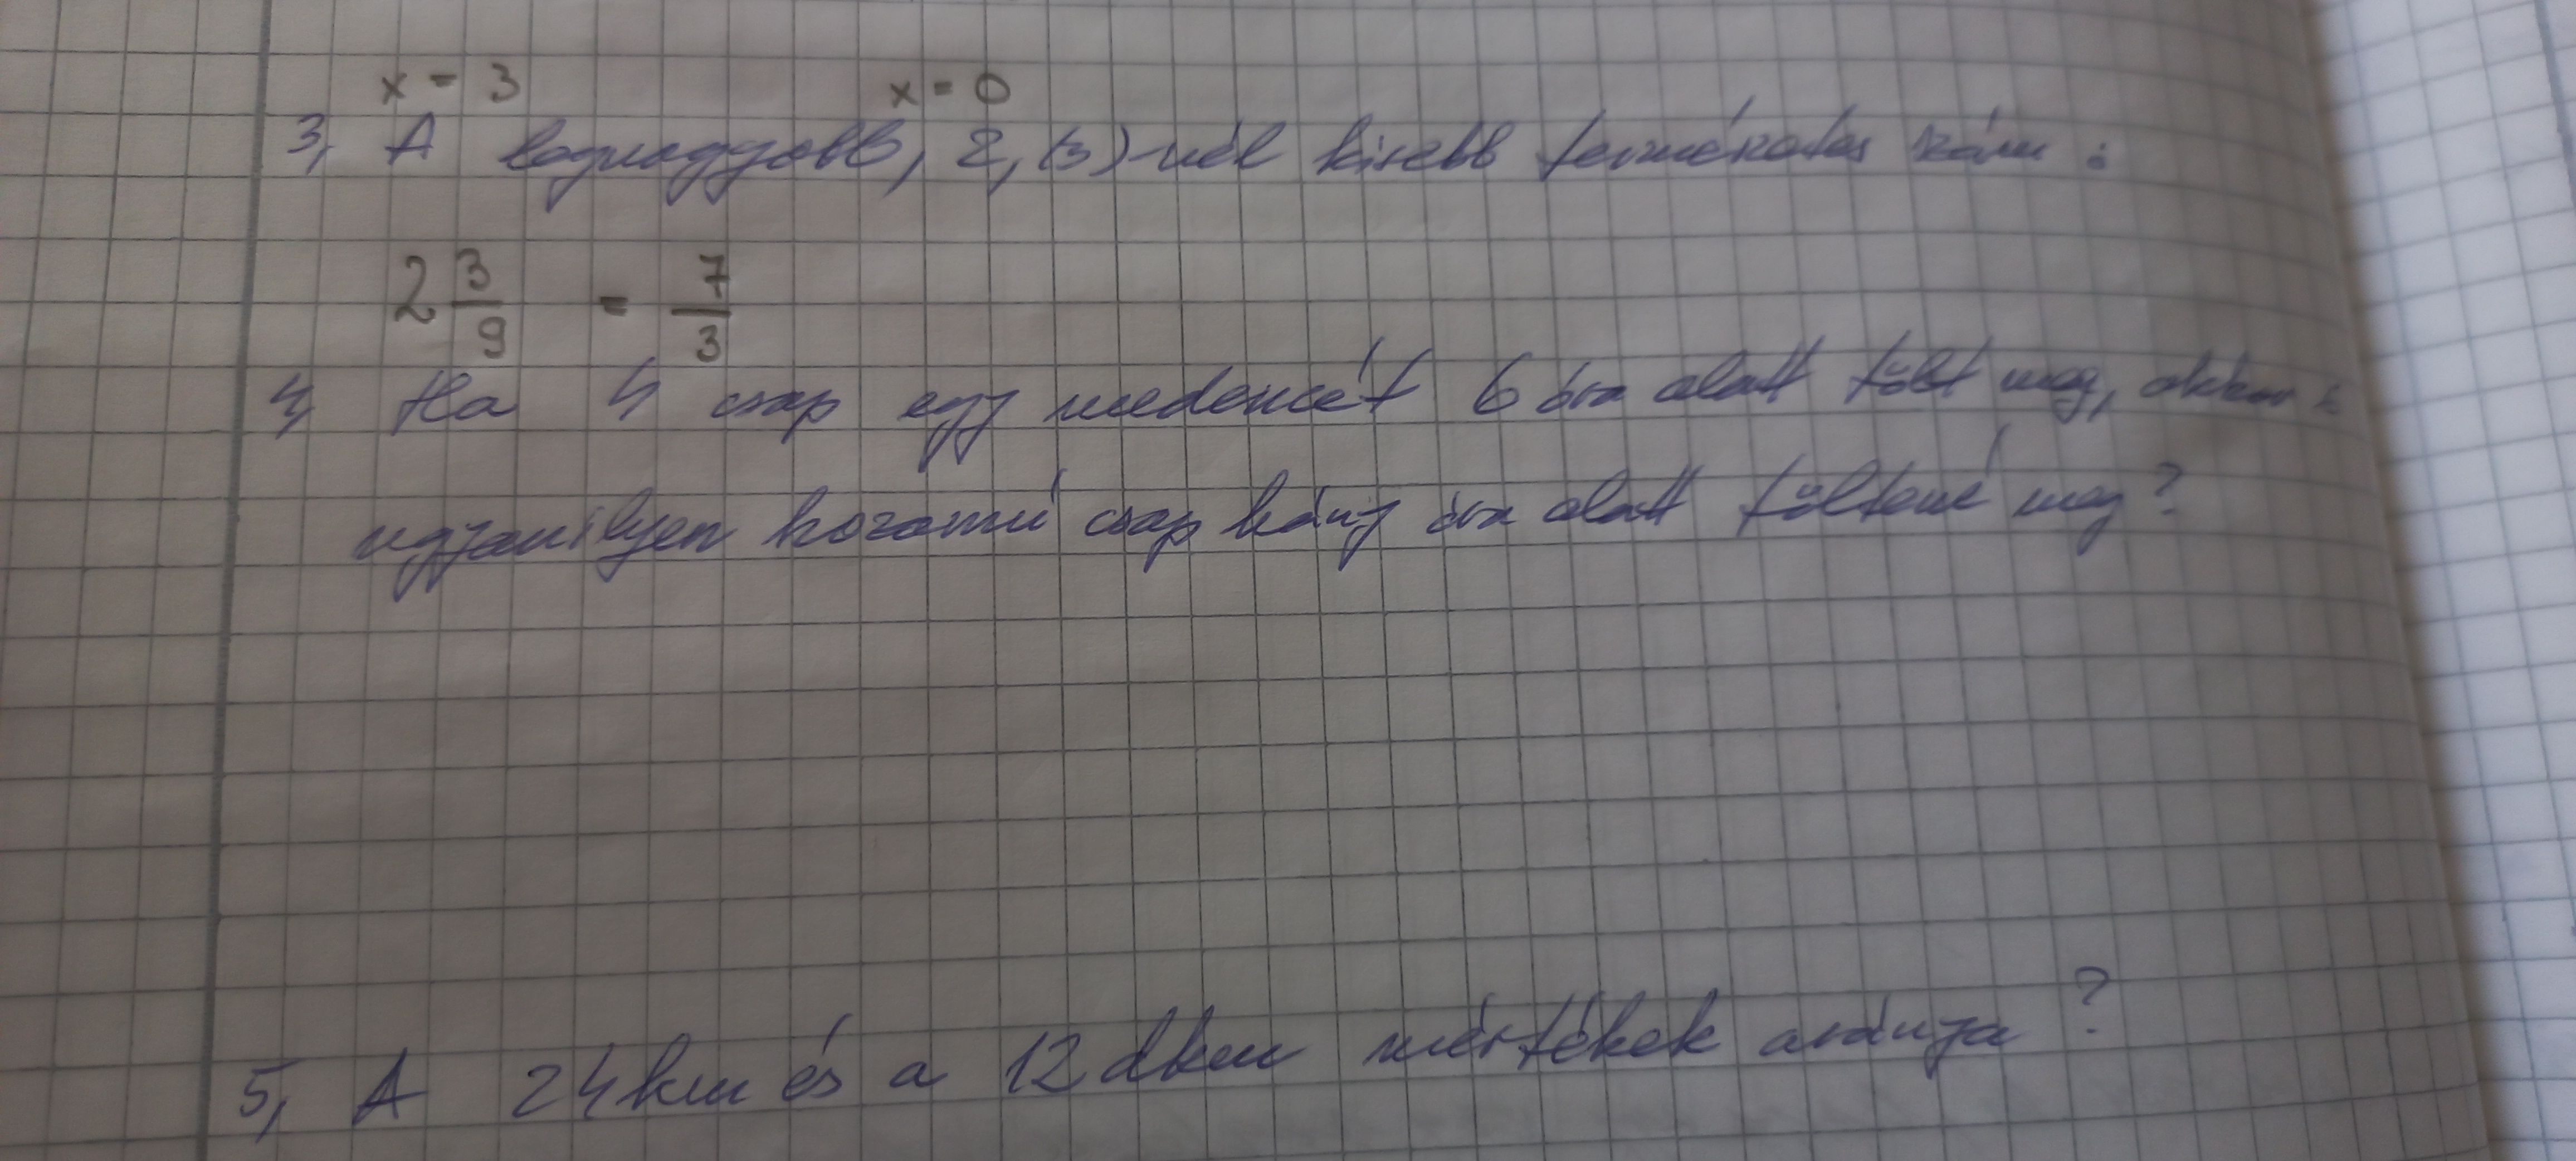 x = 3 x = 0
3, A legnagyobb, 2,(3)-nál kisebb természetes szám :
2 3/9 = 7/3
4, Ha 4 csap egy medencét 6 óra alatt tölt meg, akkor
ugyanilyen hozamú csap hány óra alatt töltené meg?
5, A 24km és a 12dkm mértékek aránya ?